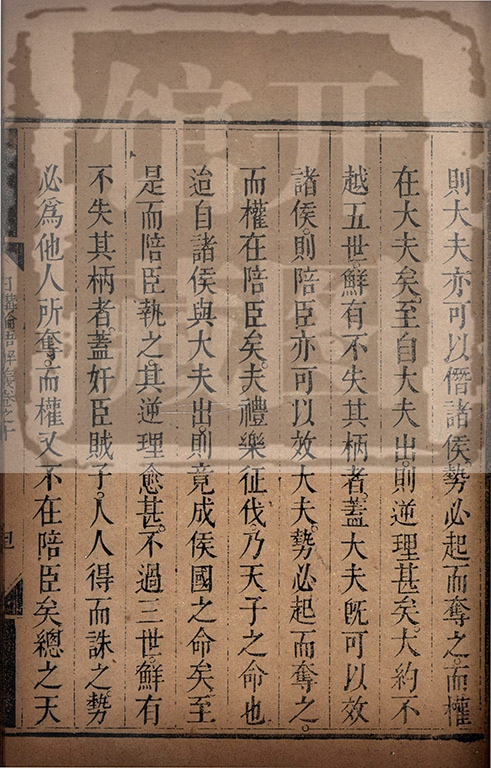 則大夫亦可以僭諸侯。勢必起而奪之。而權
在大夫矣。至自大夫出。則逆理甚矣。大約不
越五世。鮮有不失其柄者。蓋大夫旣可以效
諸侯。則陪臣亦可以效大夫。勢必起而奪之。
而權在陪臣矣。夫禮樂征伐。乃天子之命也
迨自諸侯與大夫出。則竟成侯國之命矣。至
是而陪臣執之。其逆理愈甚。不過三世。鮮有
不失其柄者。蓋奸臣賊子。人人得而誅之。勢
必爲他人所奪。而權又不在陪臣矣。總之天